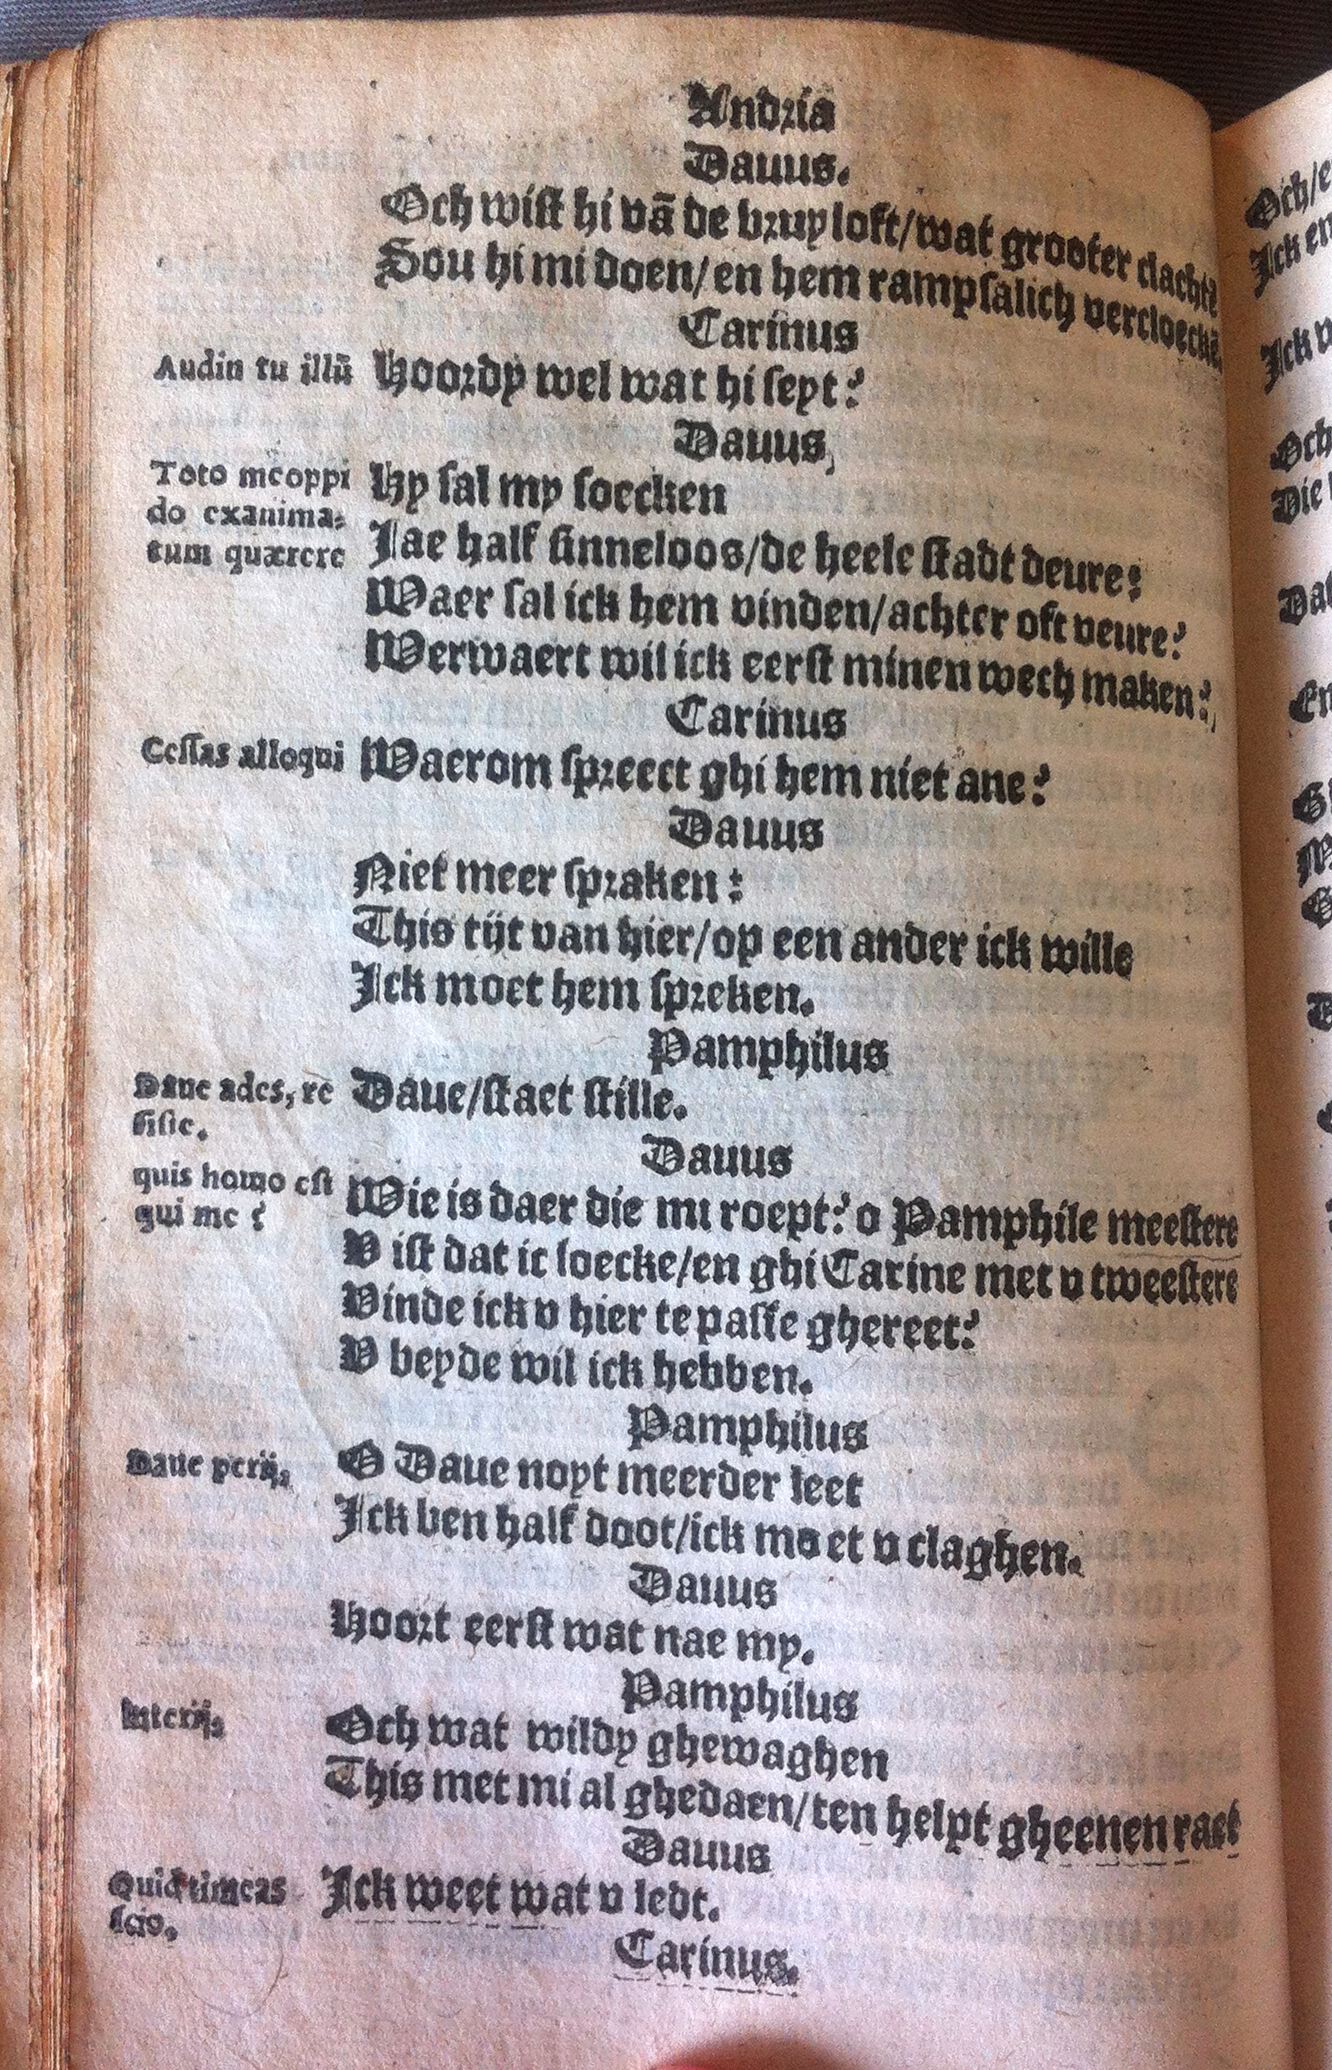 Andria
Dauus.
Och wist hi vā de bruyloft/wat grooter clachtē
Sou hi mi doen/en hem rampsalich vercloeckē.
Carinus
Audin tu illū
Hoordy wel wat hi seyt?
Dauus,
Toto meoppi
do exanima-
tum quærere
Hy sal my soecken
Jae half sinneloos/de heele stadt deure:
Waer sal ick hem vinden/achter oft veure?
Werwaert wil ick eerst minen wech maken?
Carinus
Cessas alloqui
Waerom spreect ghi hem niet ane?
Dauus
Niet meer spraken:
This tijt van hier/op een ander ick wille
Ick moet hem spreken.
Pamphilus
Daue ades, re
sisie.
Daue/staet stille.
Dauus
quis homo est
qui me ?
Wie is daer die mi roept? o Pamphile meestere
V ist dat ic soecke/en ghi Carine met v tweestere
Vinde ick v hier te passe ghereet?
V beyde wil ick hebben.
Pamphilus
Daue perij,
O Daue noyt meerder leet
Ick ben half doot/ick moet v claghen.
Dauus
Hoort eerst wat nae my.
Pamphilus
Interij,
Och wat wildy ghewaghen
This met mi al ghedaen/ten helpt gheenen raet
Dauus
Quid timeas
scio.
Ick weet wat v ledt.
Carinus.
Och/e
Ick en
Ick v
Och
Die
Dat
En